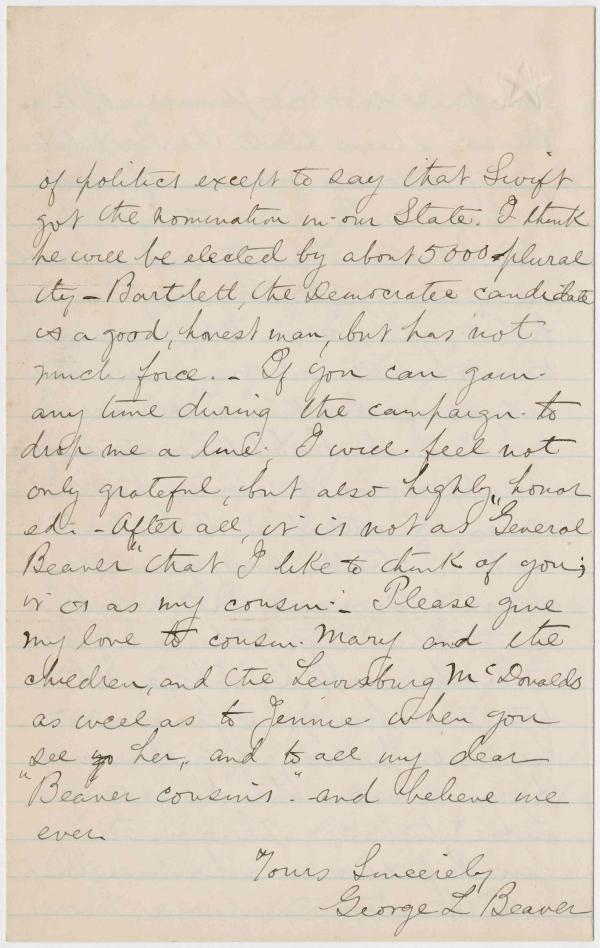 of politics except to say that Swift
got the nomination in our State. I think
he will be elected by about 5000 plural
ity – Bartlett, the Democratic candidate
is a good, honest man, but has not
much force. – If you can gain
any time during the campaign to
drop me a line, I will feel not
only grateful, but also highly honor
ed. – After all, it is not as "General
Beaver" that I like to think of you;
it is as my cousin. – Please give
my love to cousin Mary and the
children, and the Lewisburg McDonalds
as well as to Jennie when you
see her, and to all my dear
"Beaver cousins." and believe me
ever
Yours Sincerely
George L Beaver